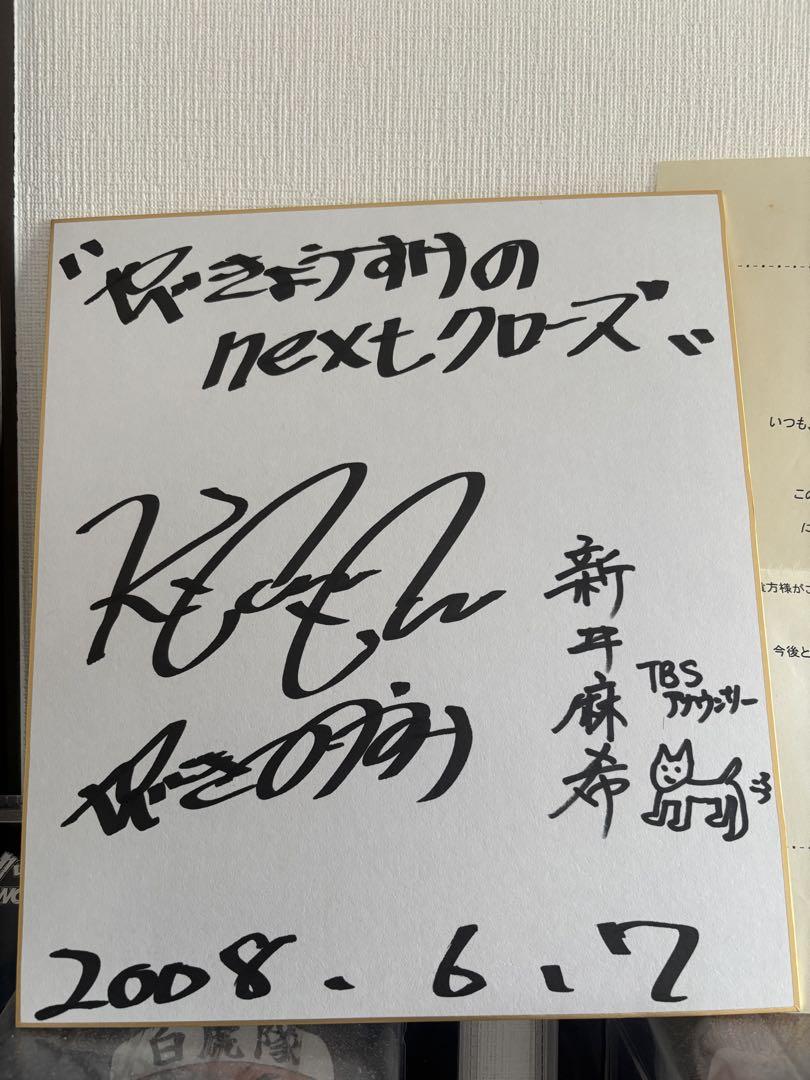 "やべきょうすけの
nextクローズ"
やべきょうすけ
新井麻希
TBS
アナウンサー
2008.6.7
いつも、
この
に
貴方様がこ
今後と
白虎隊